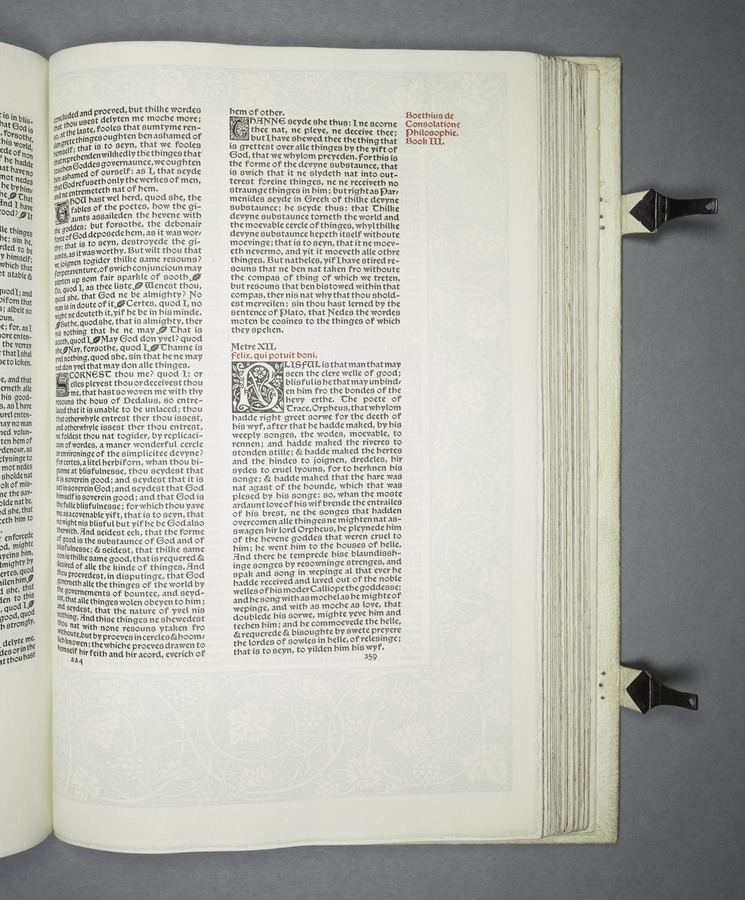 concluded and proeved, but thilke wordes
that thou usest delyten me moche more;
so, at the laste, fooles that sumtyme ren-
den grete thinges oughten ben ashamed of
hemself; that is to seyn, that we fooles
that reprehenden wikkedly the thinges that
touchen Goddes governaunce, we oughten
ben ashamed of ourself: as I, that seyde
that God refuseth only the werkes of men,
and ne entremeteth nat of hem.
THOU hast wel herd, quod she, the
fables of the poetes, how the gi-
aunts assaileden the hevene with
the goddes; but forsothe, the debonair
force of God deposede hem, as it was wor-
thy; that is to seyn, destroyede the gi-
aunts, as it was worthy. But wilt thou that
we joignen togider thilke same resouns?
For peraventure, of swich conjunccioun may
sterten up som fair sparkle of sooth.
Do, quod I, as thee liste. Wenest thou,
quod she, that God ne be almighty? No
man is in doute of it. Certes, quod I, no
wight ne douteth it, yif he be in his minde.
But he, quod she, that is almighty, ther
nis nothing that he ne may. That is
sooth, quod I. May God don yvel? quod
she. Nay, forsothe, quod I. Thanne is
yvel nothing, quod she, sin that he ne may
nat don yvel that may don alle thinges.
SCORNEST thou me? quod I; or
elles pleyest thou or deceivest thou
me, that hast so woven me with thy
resouns the hous of Dedalus, so entre-
laced that it is unable to be unlaced; thou
that otherwhyle entrest ther thou issest,
and otherwhyle issest ther thou entrest,
ne foldest thou nat togider, by replicaci-
oun of wordes, a maner wonderful cercle
or environinge of the simplicitee devyne?
For certes, a litel herbiforn, whan thou bi-
gunne at blisfulnesse, thou seydest that
it is soverein good; and seydest that it is
set in soverein God; and seydest that God
himself is soverein good; and that God is
the fulle blisfulnesse; for which thou yave
me as a covenable yift, that is to seyn, that
no wight nis blisful but yif he be God also
therwith. And seidest eek, that the forme
of good is the substaunce of God and of
blisfulnesse; & seidest, that thilke same
oon is thilke same good, that is requered &
desired of alle the kinde of thinges. And
thou proevedest, in disputinge, that God
governeth alle the thinges of the world by
the governements of bountee, and seyd-
est, that alle thinges wolen obeyen to him;
and seydest, that the nature of yvel nis
nothing. And thise thinges ne shewedest
thou nat with none resouns ytaken fro
withoute, but by proeves in cercles & hoom-
lich knowen; the whiche proeves drawen to
hemself hir feith and hir acord, everich of
224
hem of other.
THANNE seyde she thus: I ne scorne
thee nat, ne pleye, ne deceive thee;
but I have shewed thee the thing that
is grettest over alle thinges by the yift of
God, that we whylom preyeden. For this is
the forme of the devyne substaunce, that
is swich that it ne slydeth nat into out-
terest foreine thinges, ne ne receiveth no
straunge thinges in him; but right as Par-
menides seyde in Greek of thilke devyne
substaunce; he seyde thus: that Thilke
devyne substaunce torneth the world and
the moevable cercle of thinges, whyl thilke
devyne substaunce kepeth itself withoute
moevinge; that is to seyn, that it ne moev-
eth nevermo, and yit it moeveth alle othre
thinges. But natheles, yif I have stired re-
souns that ne ben nat taken fro withoute
the compas of thing of which we treten,
but resouns that ben bistowed within that
compas, ther nis nat why that thou shold-
est merveilen; sin thou hast lerned by the
sentence of Plato, that Nedes the wordes
moten be cosines to the thinges of which
they speken.
Metre XII.
Felix, qui potuit boni.
BLISFUL is that man that may
seen the clere welle of good;
blisful is he that may unbind-
en him fro the bondes of the
hevy erthe. The poete of
Trace, Orpheus, that whylom
hadde right greet sorwe for the deeth of
his wyf, after that he hadde maked, by his
weeply songes, the wodes, moevable, to
rennen; and hadde maked the riveres to
stonden stille; & hadde maked the hertes
and the hindes to joignen, dredeles, hir
sydes to cruel lyouns, for to herknen his
songe; & hadde maked that the hare was
nat agast of the hounde, which that was
plesed by his songe: so, whan the moste
ardaunt love of his wif brende the entrailes
of his brest, ne the songes that hadden
overcomen alle thinges ne mighten nat as-
swagen hir lord Orpheus, he pleynede him
of the hevene goddes that weren cruel to
him; he went him to the houses of helle.
And there he temprede hise blaundissh-
inge songes by resowninge strenges, and
spak and song in wepinge al that ever he
hadde received and laved out of the noble
welles of his moder Calliope the goddesse;
and he song with as mochel as he mighte of
wepinge, and with as moche as love, that
doublede his sorwe, mighte yeve him and
techen him; and he commoevede the helle,
& requerede & bisoughte by swete preyere
the lordes of sowles in helle, of relesinge;
that is to seyn, to yilden him his wyf.
259
Boethius de
Consolatione
Philosophie.
Book III.